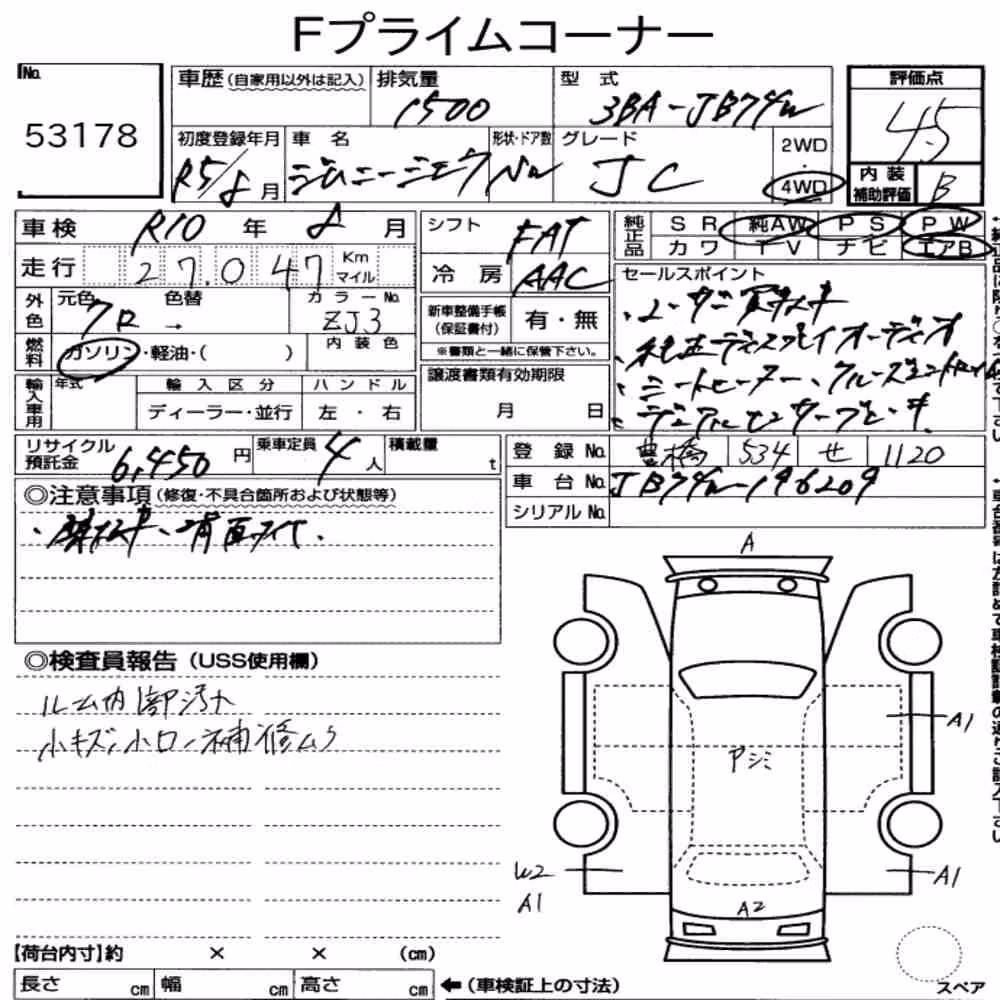 Fプライムコーナー
No.
53178
車歴(自家用以外は記入)
排気量
1500
型式
3BA-JB74W
評価点
4.5
初度登録年月
R5/8月
車名
ジムニーシエラ
形状・ドア数
グレード
JC
2WD
・
4WD
内装
補助評価
B
車検 R10年 8月
走行 27,047 Km マイル
外色
元色
クロ
色替
→
カラーNo.
ZJ3
燃料
ガソリン・軽油・( )
内装色
輸入車用
年式
輸入区分
ディーラー・並行
ハンドル
左・右
シフト
FAT
冷房
AAC
新車整備手帳
(保証書付)
有・無
※書類と一緒に保管下さい。
譲渡書類有効期限
月 日
純正品
SR 純AW PS PW
カワ TV ナビ エアB
セールスポイント
・ユーザー買取車
・純正ディスプレイオーディオ
・シートヒーター、クルーズコントロール
・デュアルセンサーブレーキ
リサイクル
預託金
6,450円
乗車定員
4人
積載量
t
登録No. 豊橋 534 せ 1120
車台No. JB74W-196209
シリアルNo.
◎注意事項(修復・不具合箇所および状態等)
◎検査員報告(USS使用欄)
ルーム内部汚れ
小キズ、小凹、補修ムラ
A
A1
アジミ
W2
A1
A1
A2
【荷台内寸】約 × × (cm)
長さ cm 幅 cm 高さ cm
←(車検証上の寸法)
スペア